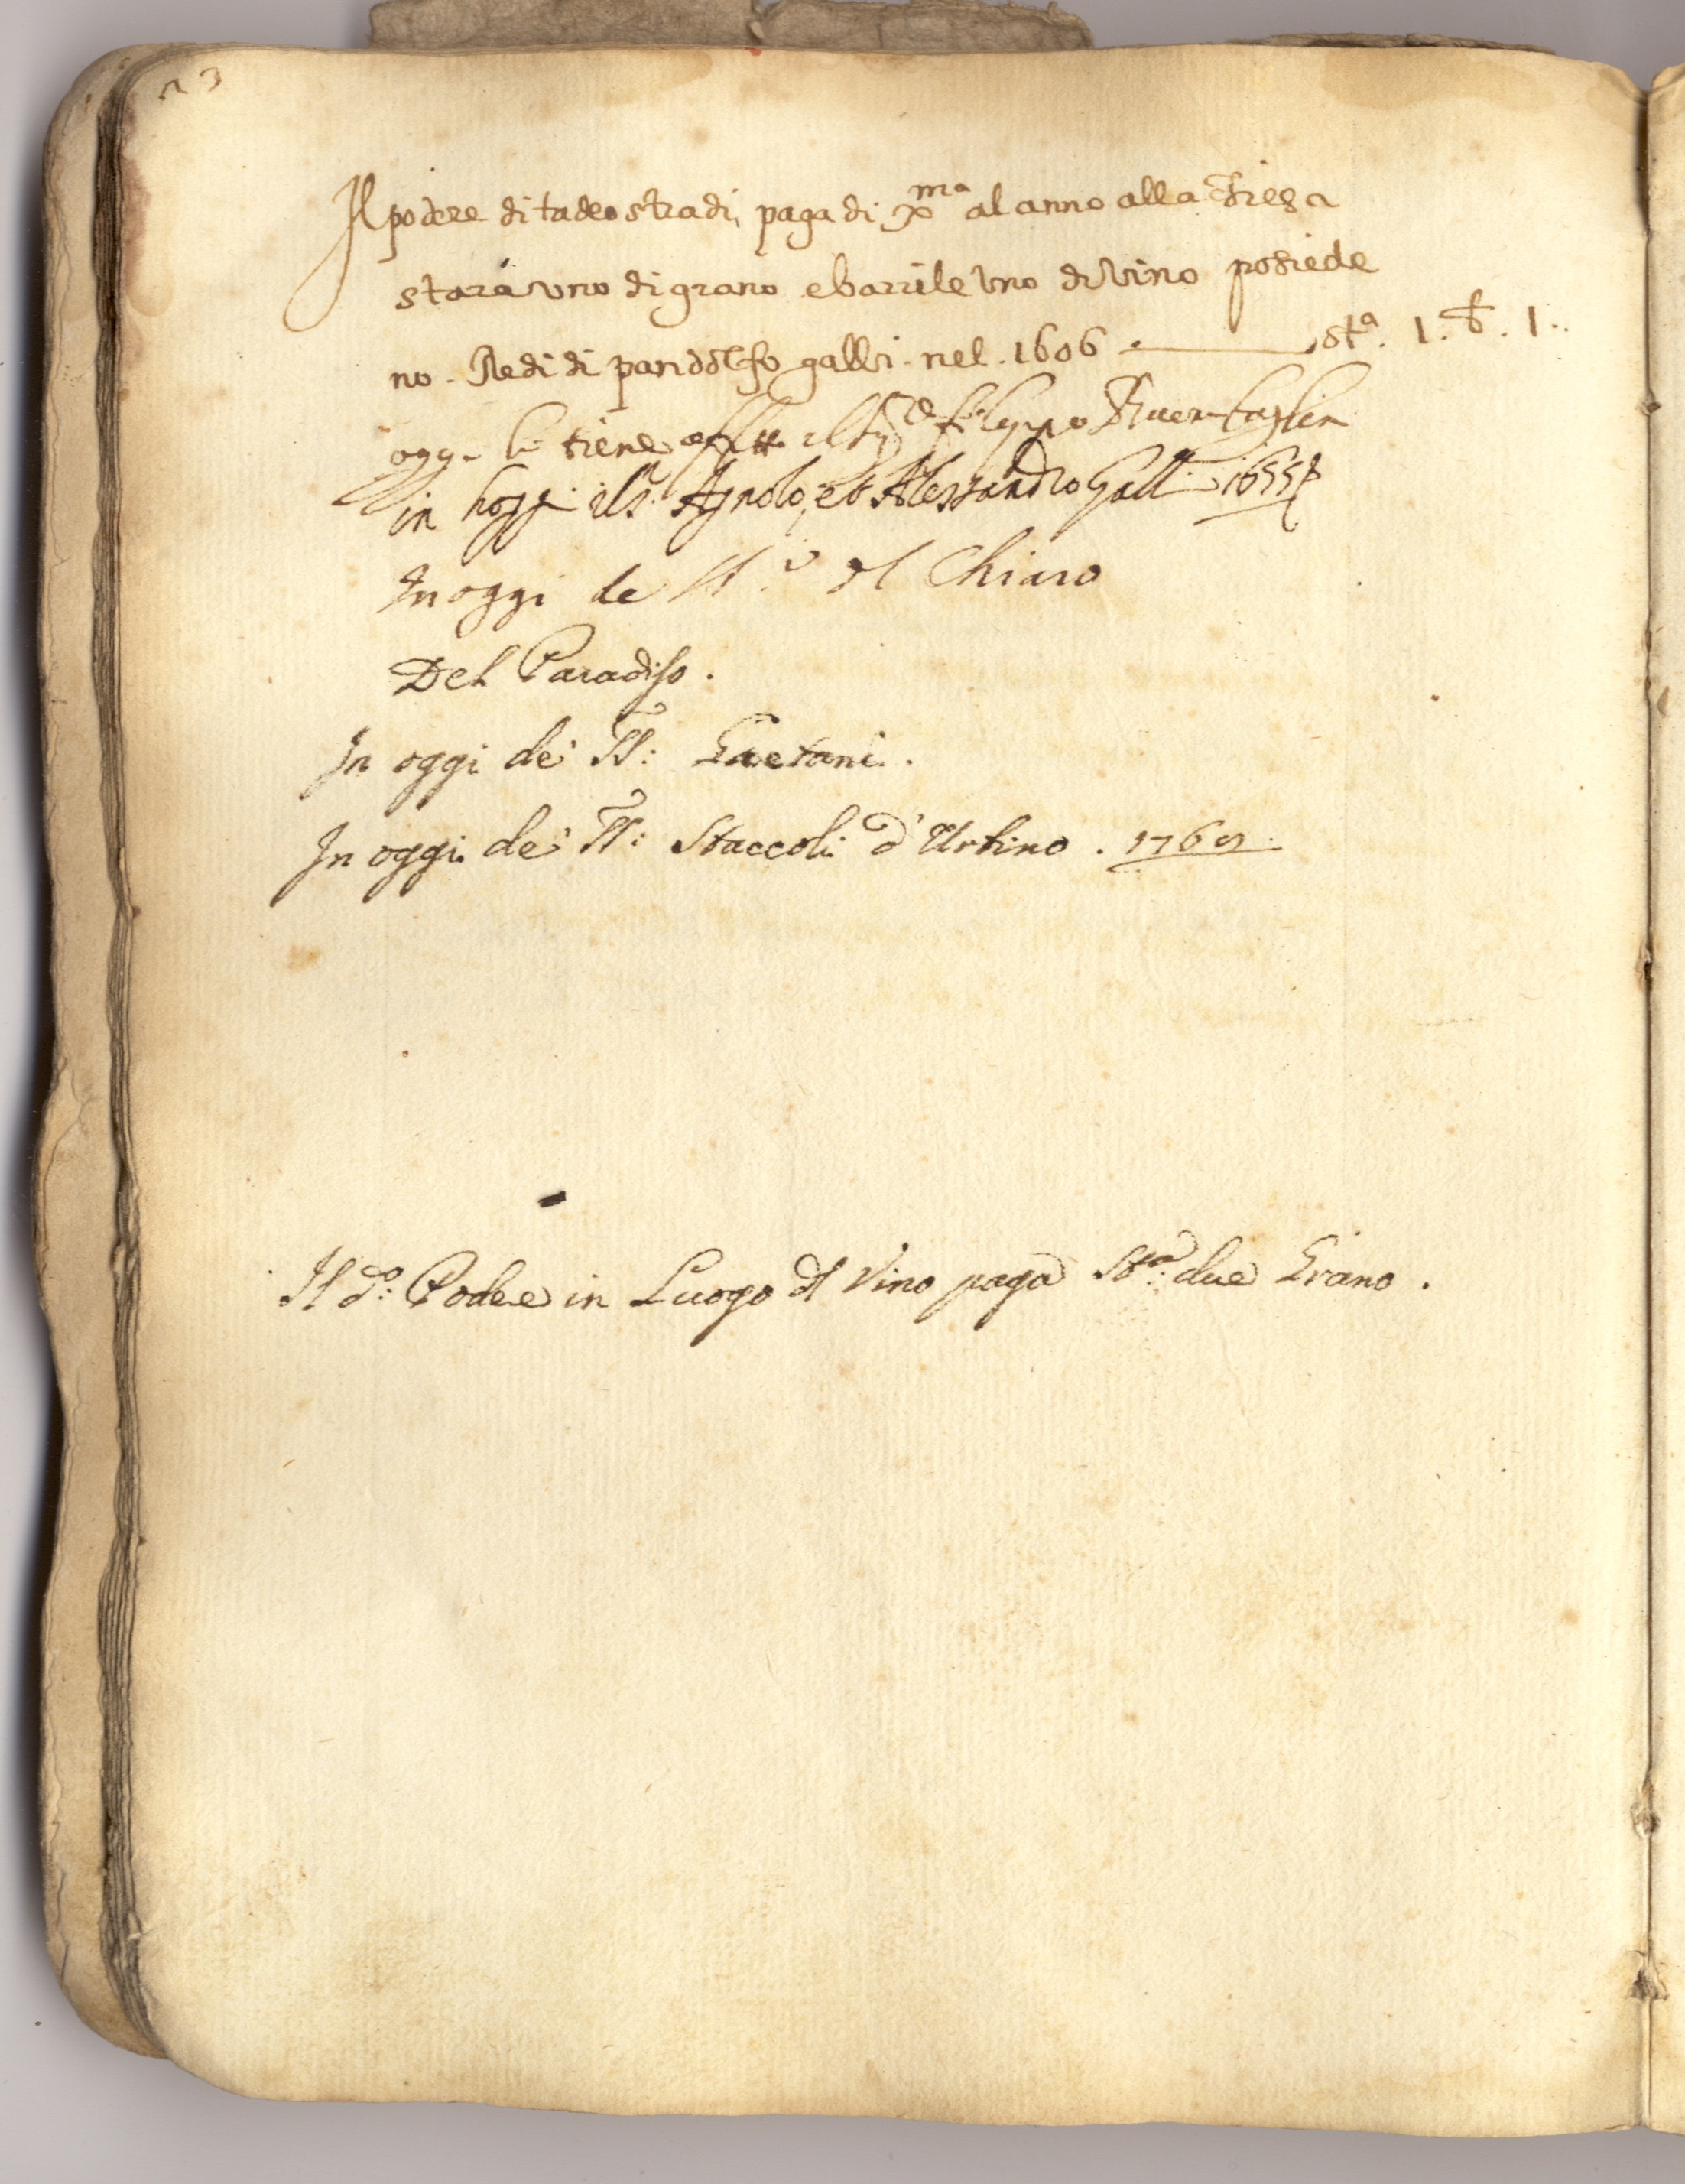 23
Il podere di tadeo stradi, paga di Xma al anno alla chiesa
stara uno di grano e barile uno di vino posiede
no. Redi di pandolfo galli. nel. 1606 . st.a 1. b. 1..
oggi lo tiene affitto il filippo
in hoggi Agnolo, et Alessandro Galli 1655
In oggi de Chiaro
Del Paradiso.
In oggi de' SS: Gaetani.
In oggi de' SS: Staccoli d'Urbino. 1769.
Il do: Podere in Luogo del Vino paga Sta: due Grano.